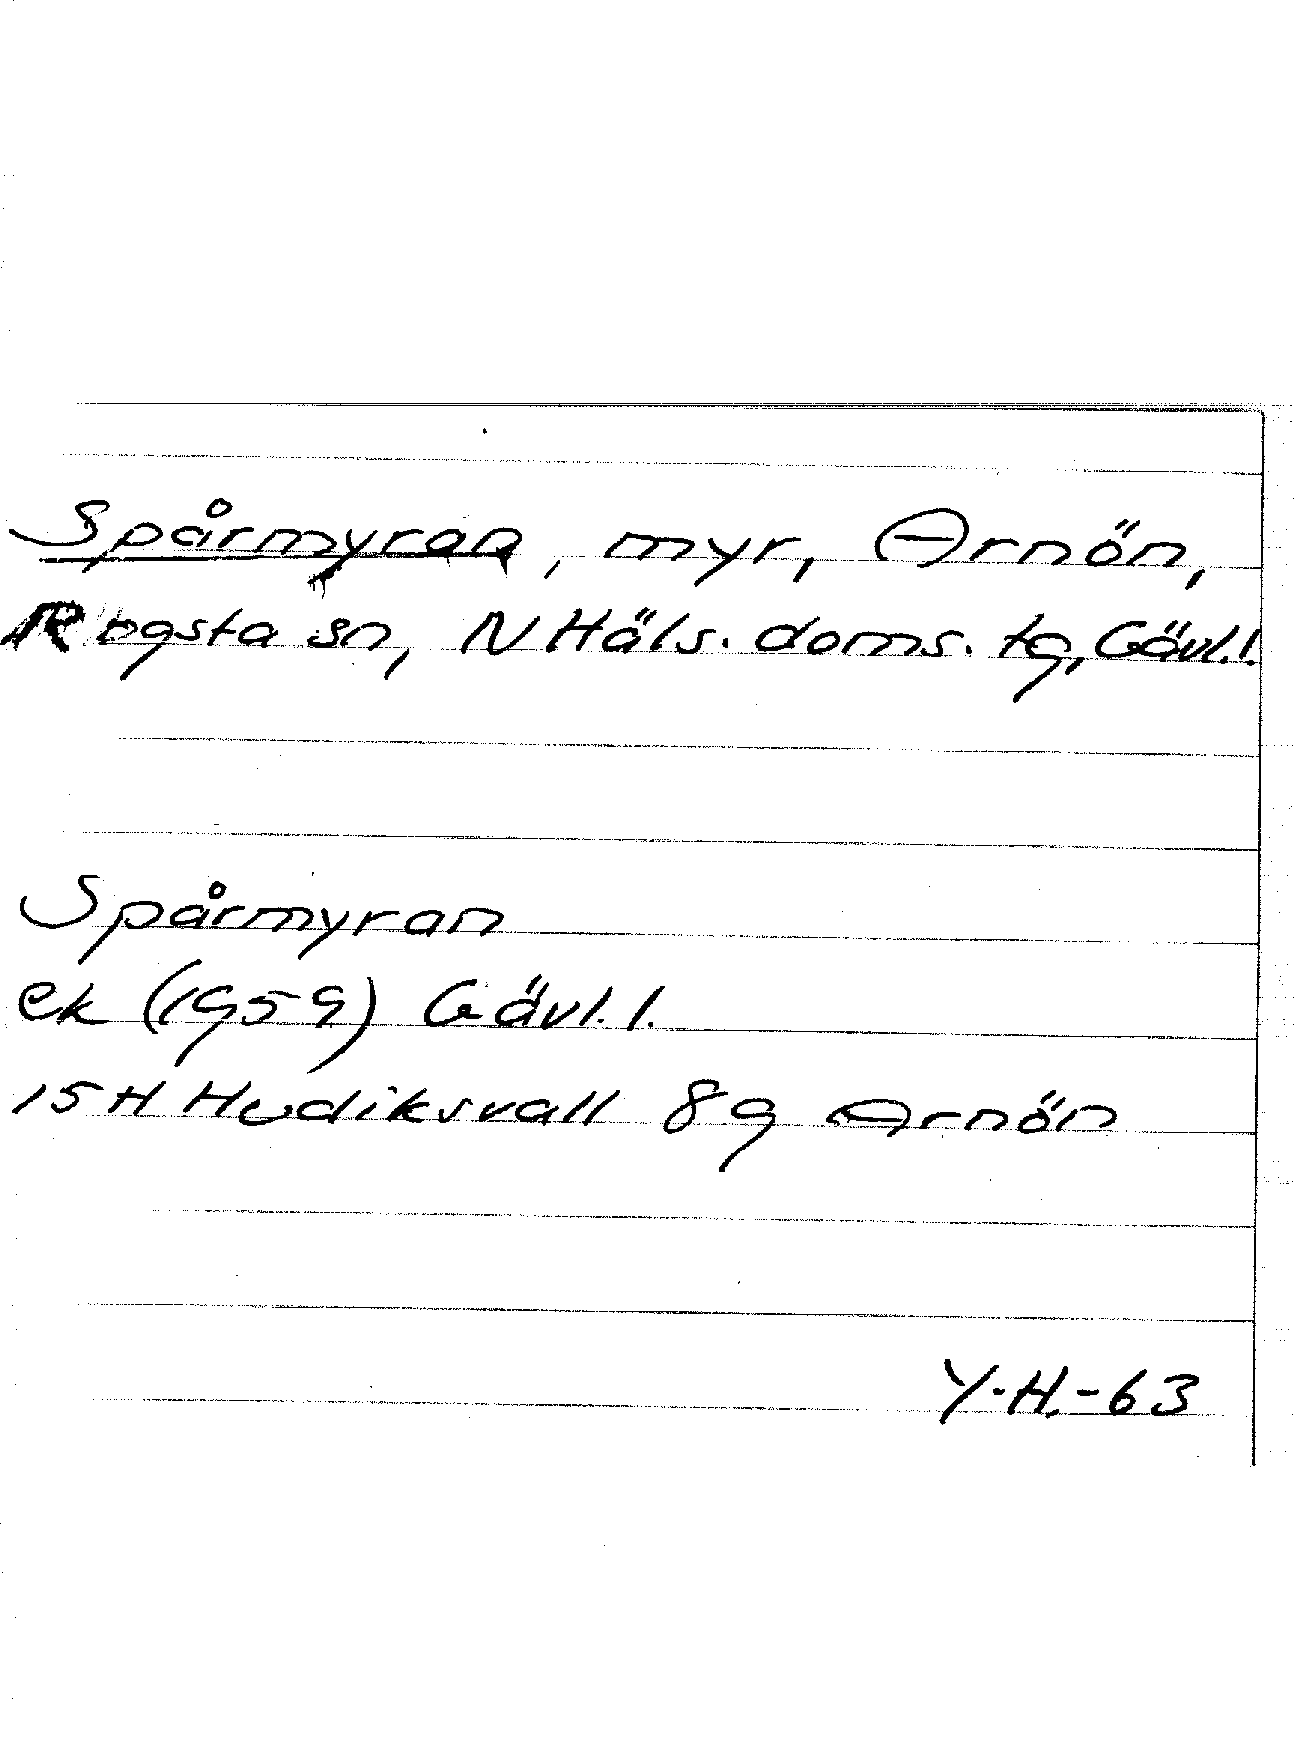 Spårmyran, myr, Arnön,
Rogsta sn, N Häls. doms. tg, Gävl.l.
Spårmyran
ek (1959) Gävl.l.
15H Hudiksvall 8g Arnön
Y.H.-63